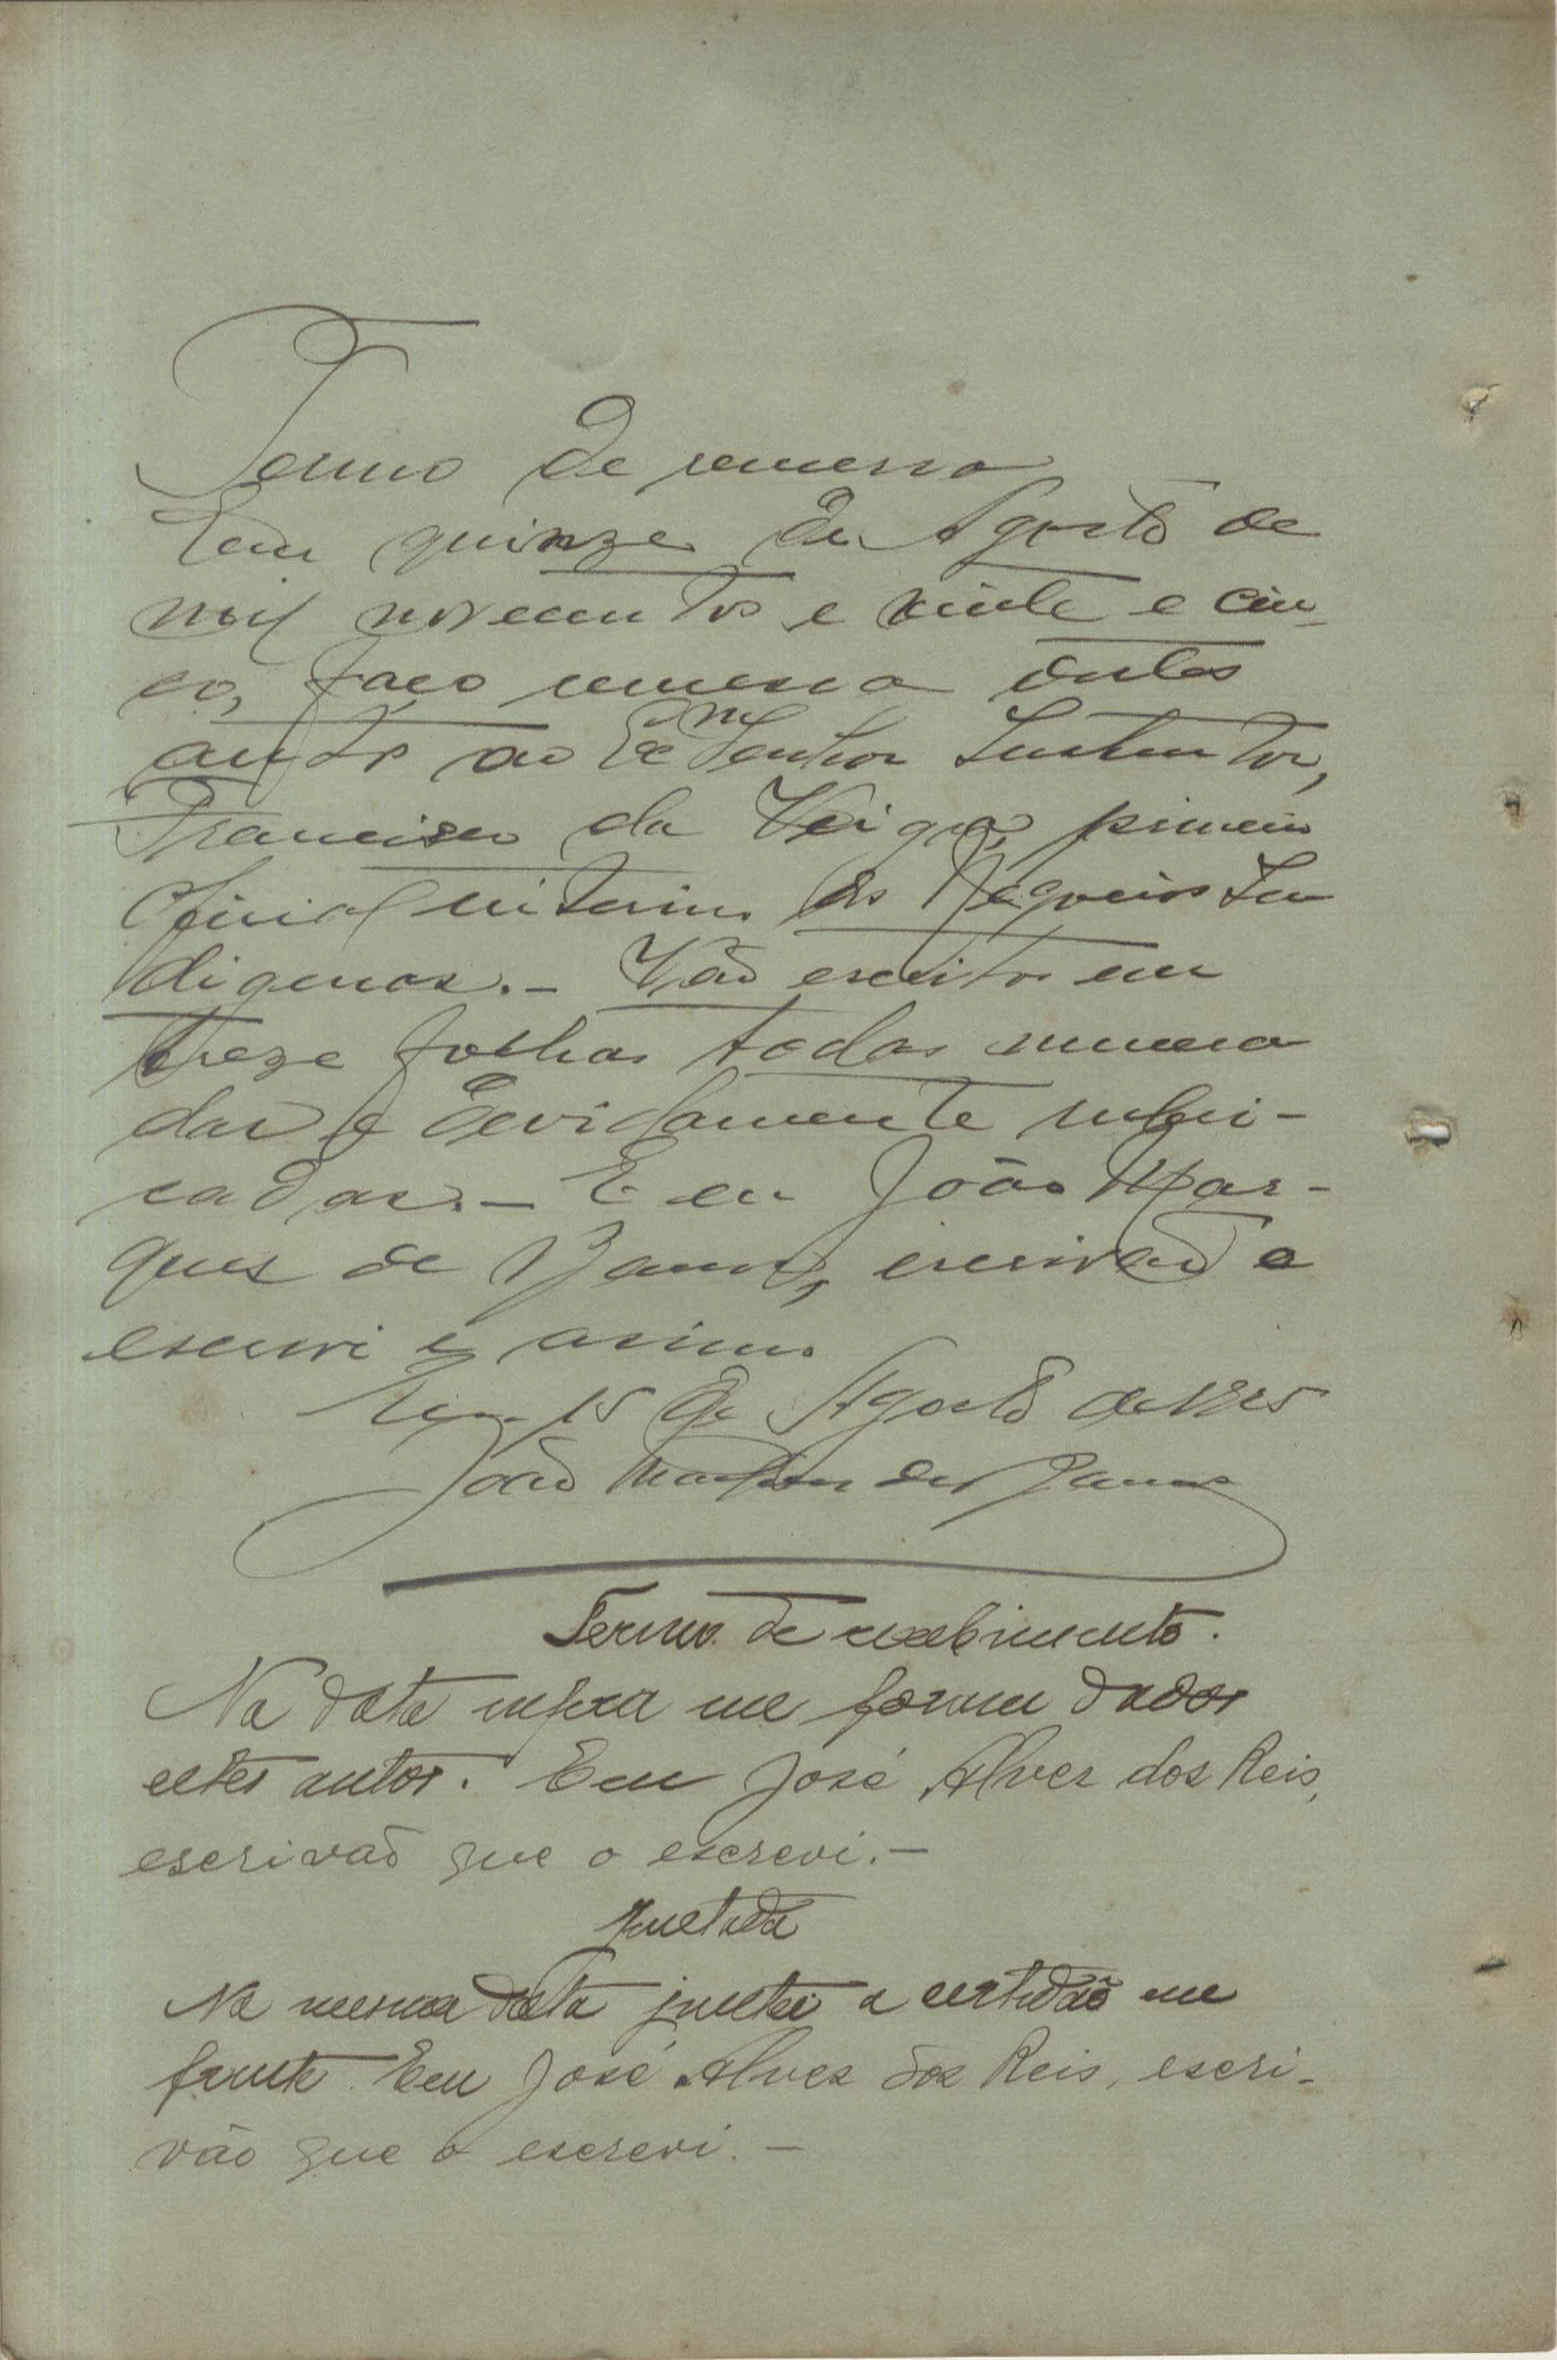 Termo de remessa
Em quinze de Agosto de
mil novecentos e vinte e cin-
co, faço remessa destes
autos ao Exmo Senhor Instrutor,
Francisco da Veiga, primeiro
oficial interino dos Negocios In
digenas.- Vão escritos em
treze folhas todas numera
das e devidamente rubri-
cadas.- E eu João Mar-
ques de escrivão o
escrevi e assino.
Em 15 de Agosto de 1925
João Marques de
Termo de recebimento.
Na data infra me foram dados
estes autos. Eeu José Alves dos Reis,
escrivão que o escrevi.-
Juntada
Na mesma data juntei a certidão em
frente. Eeu José Alves dos Reis, escri-
vão que o escrevi.-